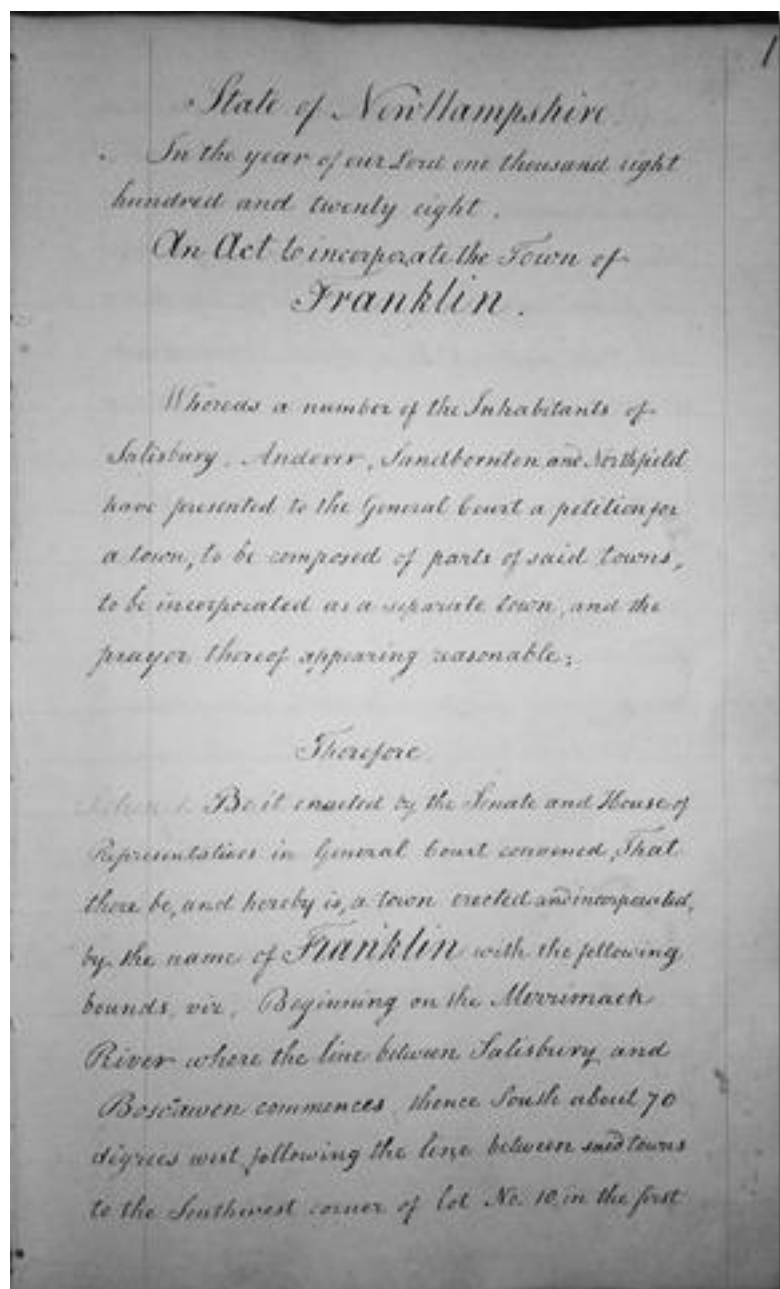 1
State of New Hampshire.
In the year of our Lord one thousand eight
hundred and twenty eight.
An Act to incorporate the Town of
Franklin.
Whereas a number of the Inhabitants of
Salisbury, Andover, Sandbornton and Northfield
have presented to the General Court a petition for
a town, to be composed of parts of said towns,
to be incorporated as a separate town, and the
prayer thereof appearing reasonable;
Therefore
Be it enacted by the Senate and House of
Representatives in General Court convened, That
there be, and hereby is, a town erected and incorporated,
by the name of Franklin with the following
bounds, viz, Beginning on the Merrimack
River where the line between Salisbury and
Boscawen commences, thence South about 70
degrees west following the line between said towns
to the Southwest corner of lot No. 10, in the first